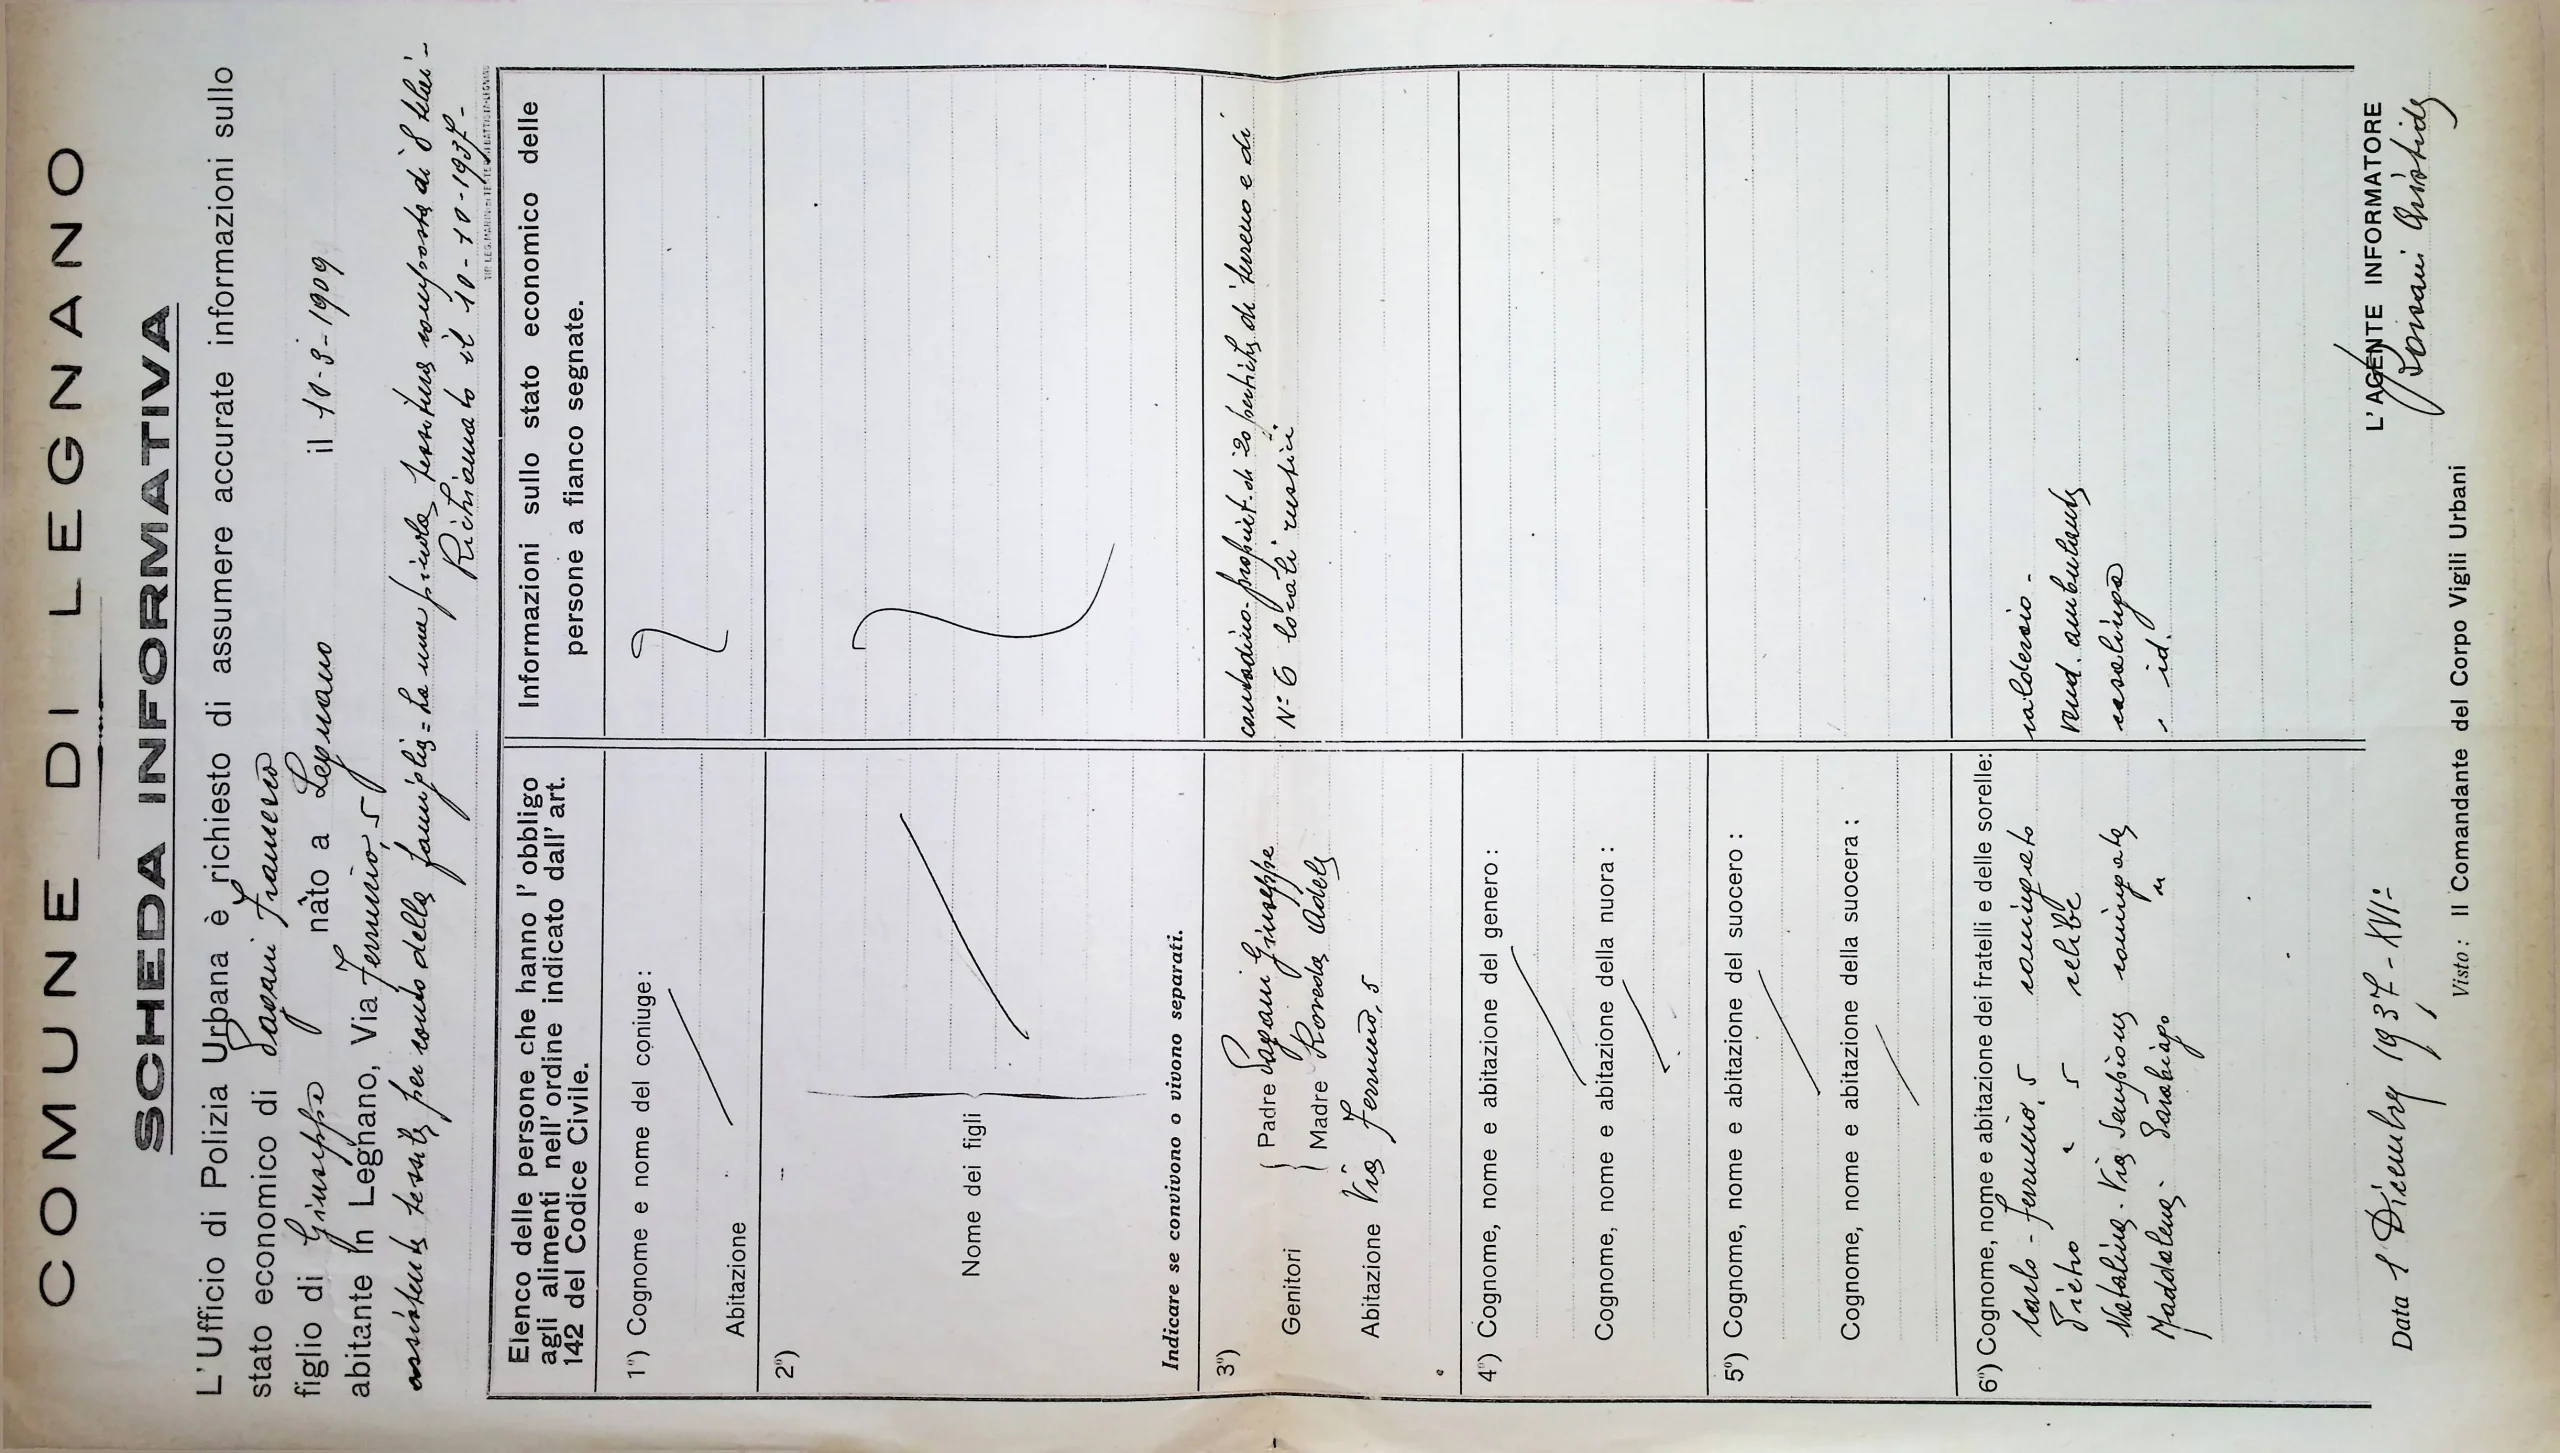 COMUNE DI LEGNANO
SCHEDA INFORMATIVA
L'Ufficio di Polizia Urbana è richiesto di assumere accurate informazioni sullo
stato economico di Pagani Francesco
figlio di Giuseppe nato a Legnano il 10-3-1909
abitante in Legnano, Via Ferruccio, 5
assistente tessile per conto della famiglia = ha una piccola tessitura composta di 8 telai -
Richiamato il 10-10-1937-
Elenco delle persone che hanno l'obbligo
agli alimenti nell'ordine indicato dall'art.
142 del Codice Civile.
Informazioni sullo stato economico delle
persone a fianco segnate.
1°) Cognome e nome del coniuge:
Abitazione
2°)
Nome dei figli
Indicare se convivono o vivono separati.
3°)
Genitori
Padre Pagani Giuseppe
Madre Roveda Adele
Abitazione Via Ferruccio, 5
contadino-propriet. di 20 pertiche di terreno e di
N° 6 locati rustici.
4°) Cognome, nome e abitazione del genero:
Cognome, nome e abitazione della nuora:
5°) Cognome, nome e abitazione del suocero:
Cognome, nome e abitazione della suocera:
6°) Cognome, nome e abitazione dei fratelli e delle sorelle:
Carlo - Ferruccio, 5 coniugato calderaio -
Pietro " 5 celibe vend. ambulante
Natalina - Via Sempione coniugata casalinga
Maddalena - Parabiago " " id.
Data 1 Dicembre 1937-XVI-
L'AGENTE INFORMATORE
Visto: Il Comandante del Corpo Vigili Urbani